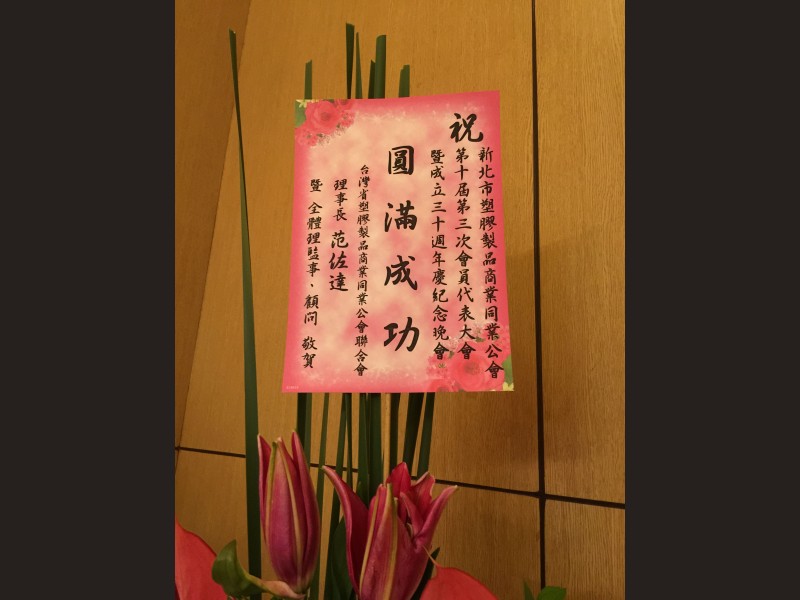 祝
新北市塑膠製品商業同業公會
第十屆第三次會員代表大會
暨成立三十週年慶紀念晚會
圓滿成功
台灣省塑膠製品商業同業公會聯合會
理事長 范佐達
暨 全體理監事、顧問 敬賀